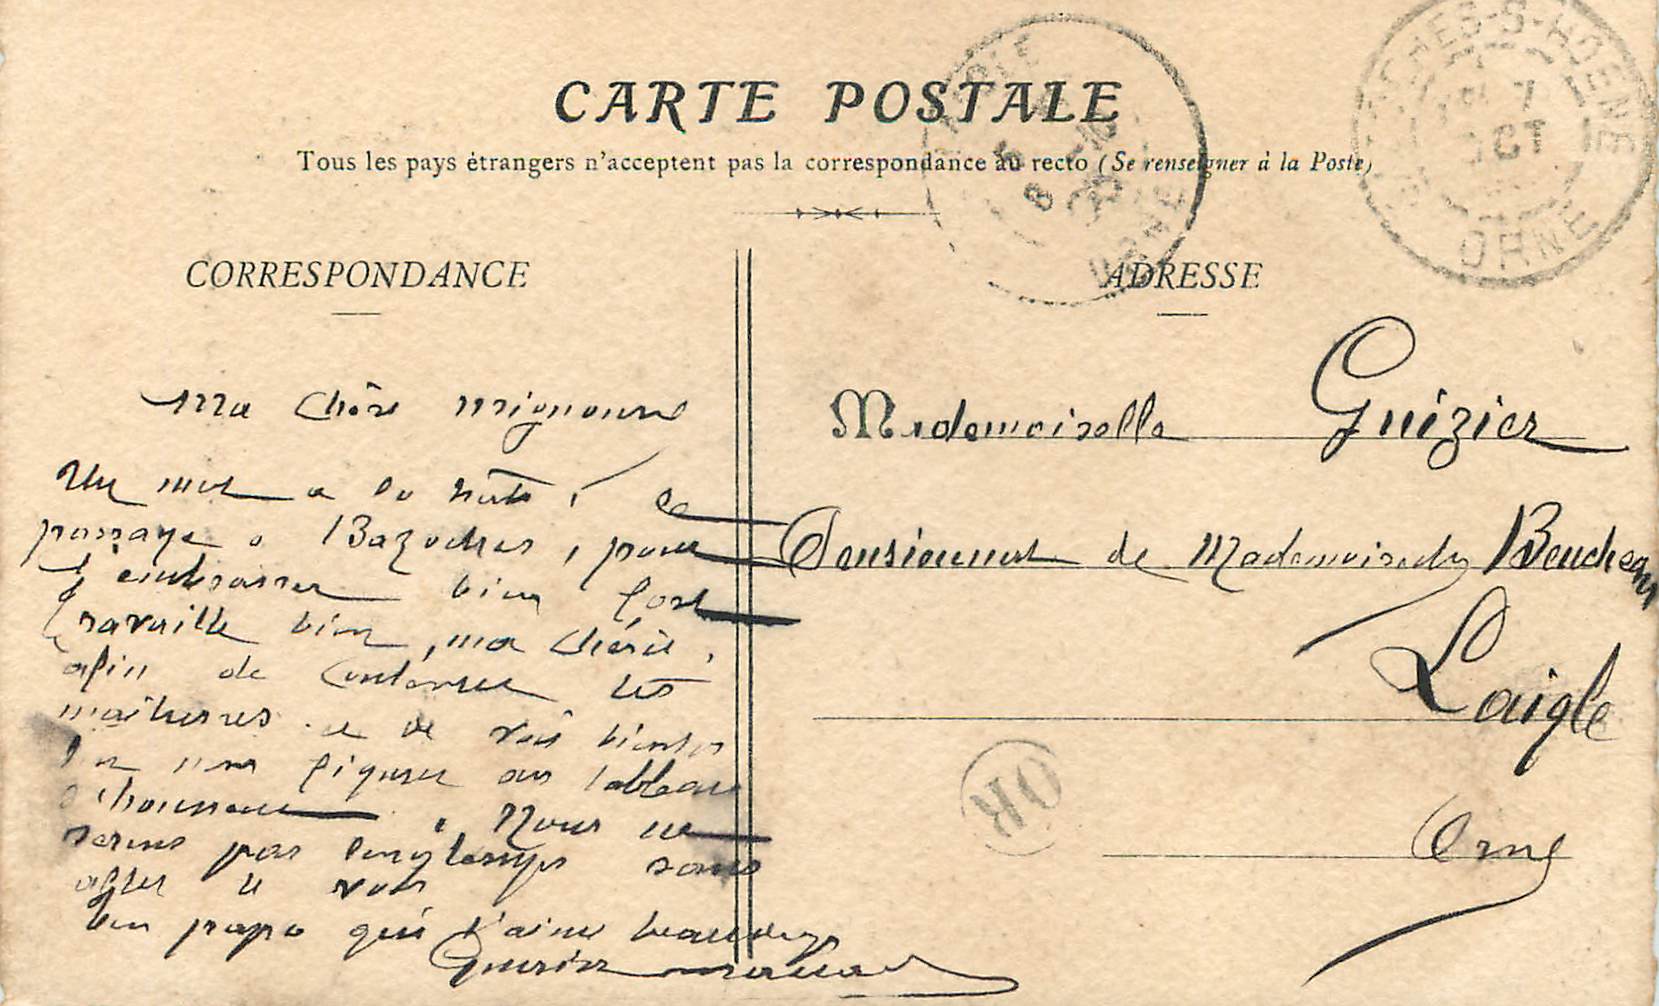 CARTE POSTALE
Tous les pays étrangers n'acceptent pas la correspondance au recto (Se renseigner à la Poste)
CORRESPONDANCE
Ma chère mignonne
Un mot a la hâte, de
passage a Bazoches, pour
t'embrasser bien fort
travaille bien, ma chérie,
afin de contenter tes
maitresses et de voir bientot
ton nom figurer au tableau
d'honneur. Nous ne
serons pas longtemps sans
aller te voir
ton papa qui t'aime beaucoup
Guizier
ADRESSE
Mademoiselle Guizier
Pensionnat de Mademoiselle Beucheau
Laigle
Orne
OR
ORNE
ORNE
7
OCT